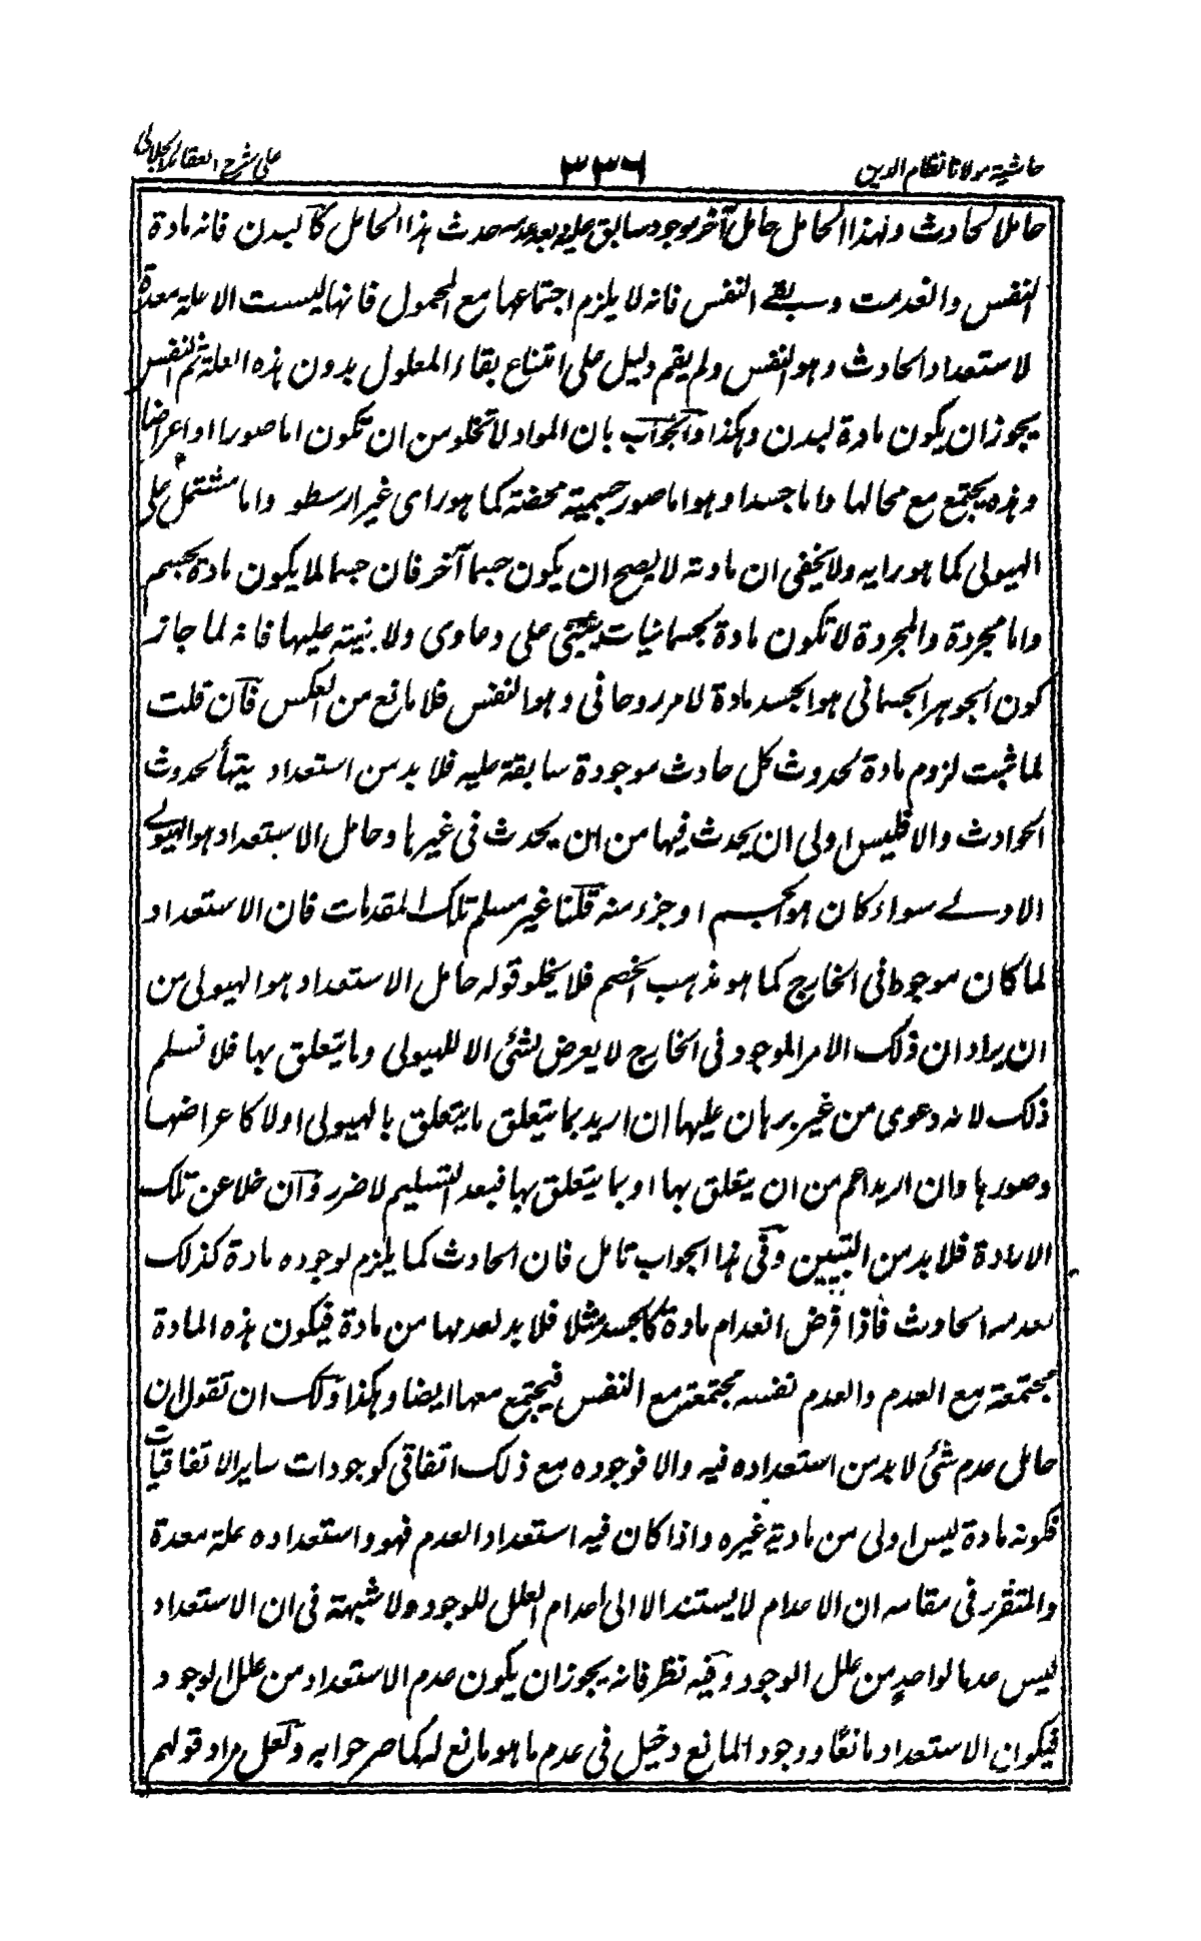 حاشية مولانا نظام الدين ٣٣٦ على شرح العقائد الجلالي
حاملا لحادث ولهذا الحامل حامل آخر موجود سابق عليه وبعد عدمه حدث هذا الحامل كالبدن فانه مادة
النفس وانعدمت وبقي النفس فانه لا يلزم اجتماعها مع المحمول فانها ليست الا علة معدة
لاستعداد الحادث وهو النفس ولم يقم دليل على امتناع بقاء المعلول بدون هذه العلة ثم النفس
يجوز ان يكون مادة لبدن وهكذا والجواب بان المواد لا تخلو من ان تكون اما صورا او اعراضا
وهذه يجتمع مع محالها واما جسدا وهو اما صور جسمية محضة كما هو راى غير ارسطو واما مشتمل على
الهيولى كما هو رايه ولا يخفى ان مادته لا يصح ان يكون جسما آخر فان جسما لا يكون مادة لجسم
واما مجردة والمجردة لا تكون مادة لجسمانيات يبتني على دعاوى ولا بنية عليها فانه لما جاز
كون الجوهر الجسمانى هو الجسد مادة لامر روحانى وهو النفس فلا مانع من العكس فان قلت
لما ثبت لزوم مادة لحدوث كل حادث موجودة سابقة عليه فلا بد من استعداد يتهيأ لحدوث
الحوادث والا فليس اولى ان يحدث فيها من ان يحدث فى غيرها وحامل الاستعداد هو الهيولى
الاولى سواء كان هو الجسم او جزء منه قلنا غير مسلم تلك المقدمات فان الاستعداد
لما كان موجودا فى الخارج كما هو مذهب الخصم فلا يخلو قوله حامل الاستعداد هو الهيولى من
ان يراد ان ذلك الامر الموجود فى الخارج لا يعرض لشئ الا للهيولى وما يتعلق بها فلا نسلم
ذلك لانه دعوى من غير برهان عليها ان اريد بما يتعلق ما يتعلق بالهيولى اولا كاعراضها
وصورها وان اريد اعم من ان يتعلق بها او بما يتعلق بها فبعد التسليم لا ضرر وان خلا عن تلك
الارادة فلا بد من التبيين وفى هذا الجواب تامل فان الحادث كما يلزم لوجوده مادة كذلك
لعدمه الحادث فاذا فرض انعدام مادة كالجسد مثلا فلا بد لعدمها من مادة فيكون هذه المادة
مجتمعة مع العدم والعدم نفسه مجتمعة مع النفس فيجتمع معها ايضا وهكذا ولك ان تقول ان
حامل عدم شئ لا بد من استعداده فيه والا فوجوده مع ذلك اتفاقى كوجودات ساير الاتفاقيات
فكونه مادة ليس اولى من مادية غيره واذا كان فيه استعداد العدم فهو واستعداده علة معدة
والمتقرر فى مقامه ان الاعدام لا يستند الا الى اعدام العلل للوجود ولا شبهة فى ان الاستعداد
ليس عدما لواحد من علل الوجود وفيه نظر فانه يجوز ان يكون عدم الاستعداد من علل الوجود
فيكون الاستعداد مانعا ووجود المانع دخيل فى عدم ما هو مانع له كما صرحوا به ولعل مراد قولهم